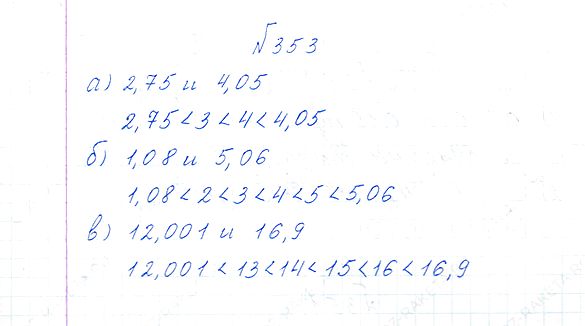 №353
а) 2,75 и 4,05
2,75<3<4<4,05
б) 1,08 и 5,06
1,08<2<3<4<5<5,06
в) 12,001 и 16,9
12,001<13<14<15<16<16,9